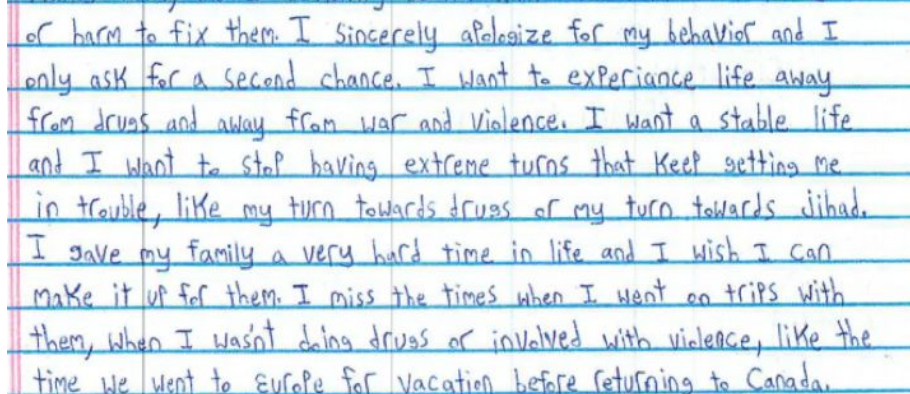 or harm to fix them. I sincerely apologize for my behavior and I
only ask for a second chance. I want to experiance life away
from drugs and away from war and violence. I want a stable life
and I want to stop having extreme turns that keep getting me
in trouble, like my turn towards drugs or my turn towards Jihad.
I gave my family a very hard time in life and I wish I can
make it up for them. I miss the times when I went on trips with
them, when I wasn't doing drugs or involved with violence, like the
time we went to Europe for vacation before returning to Canada.